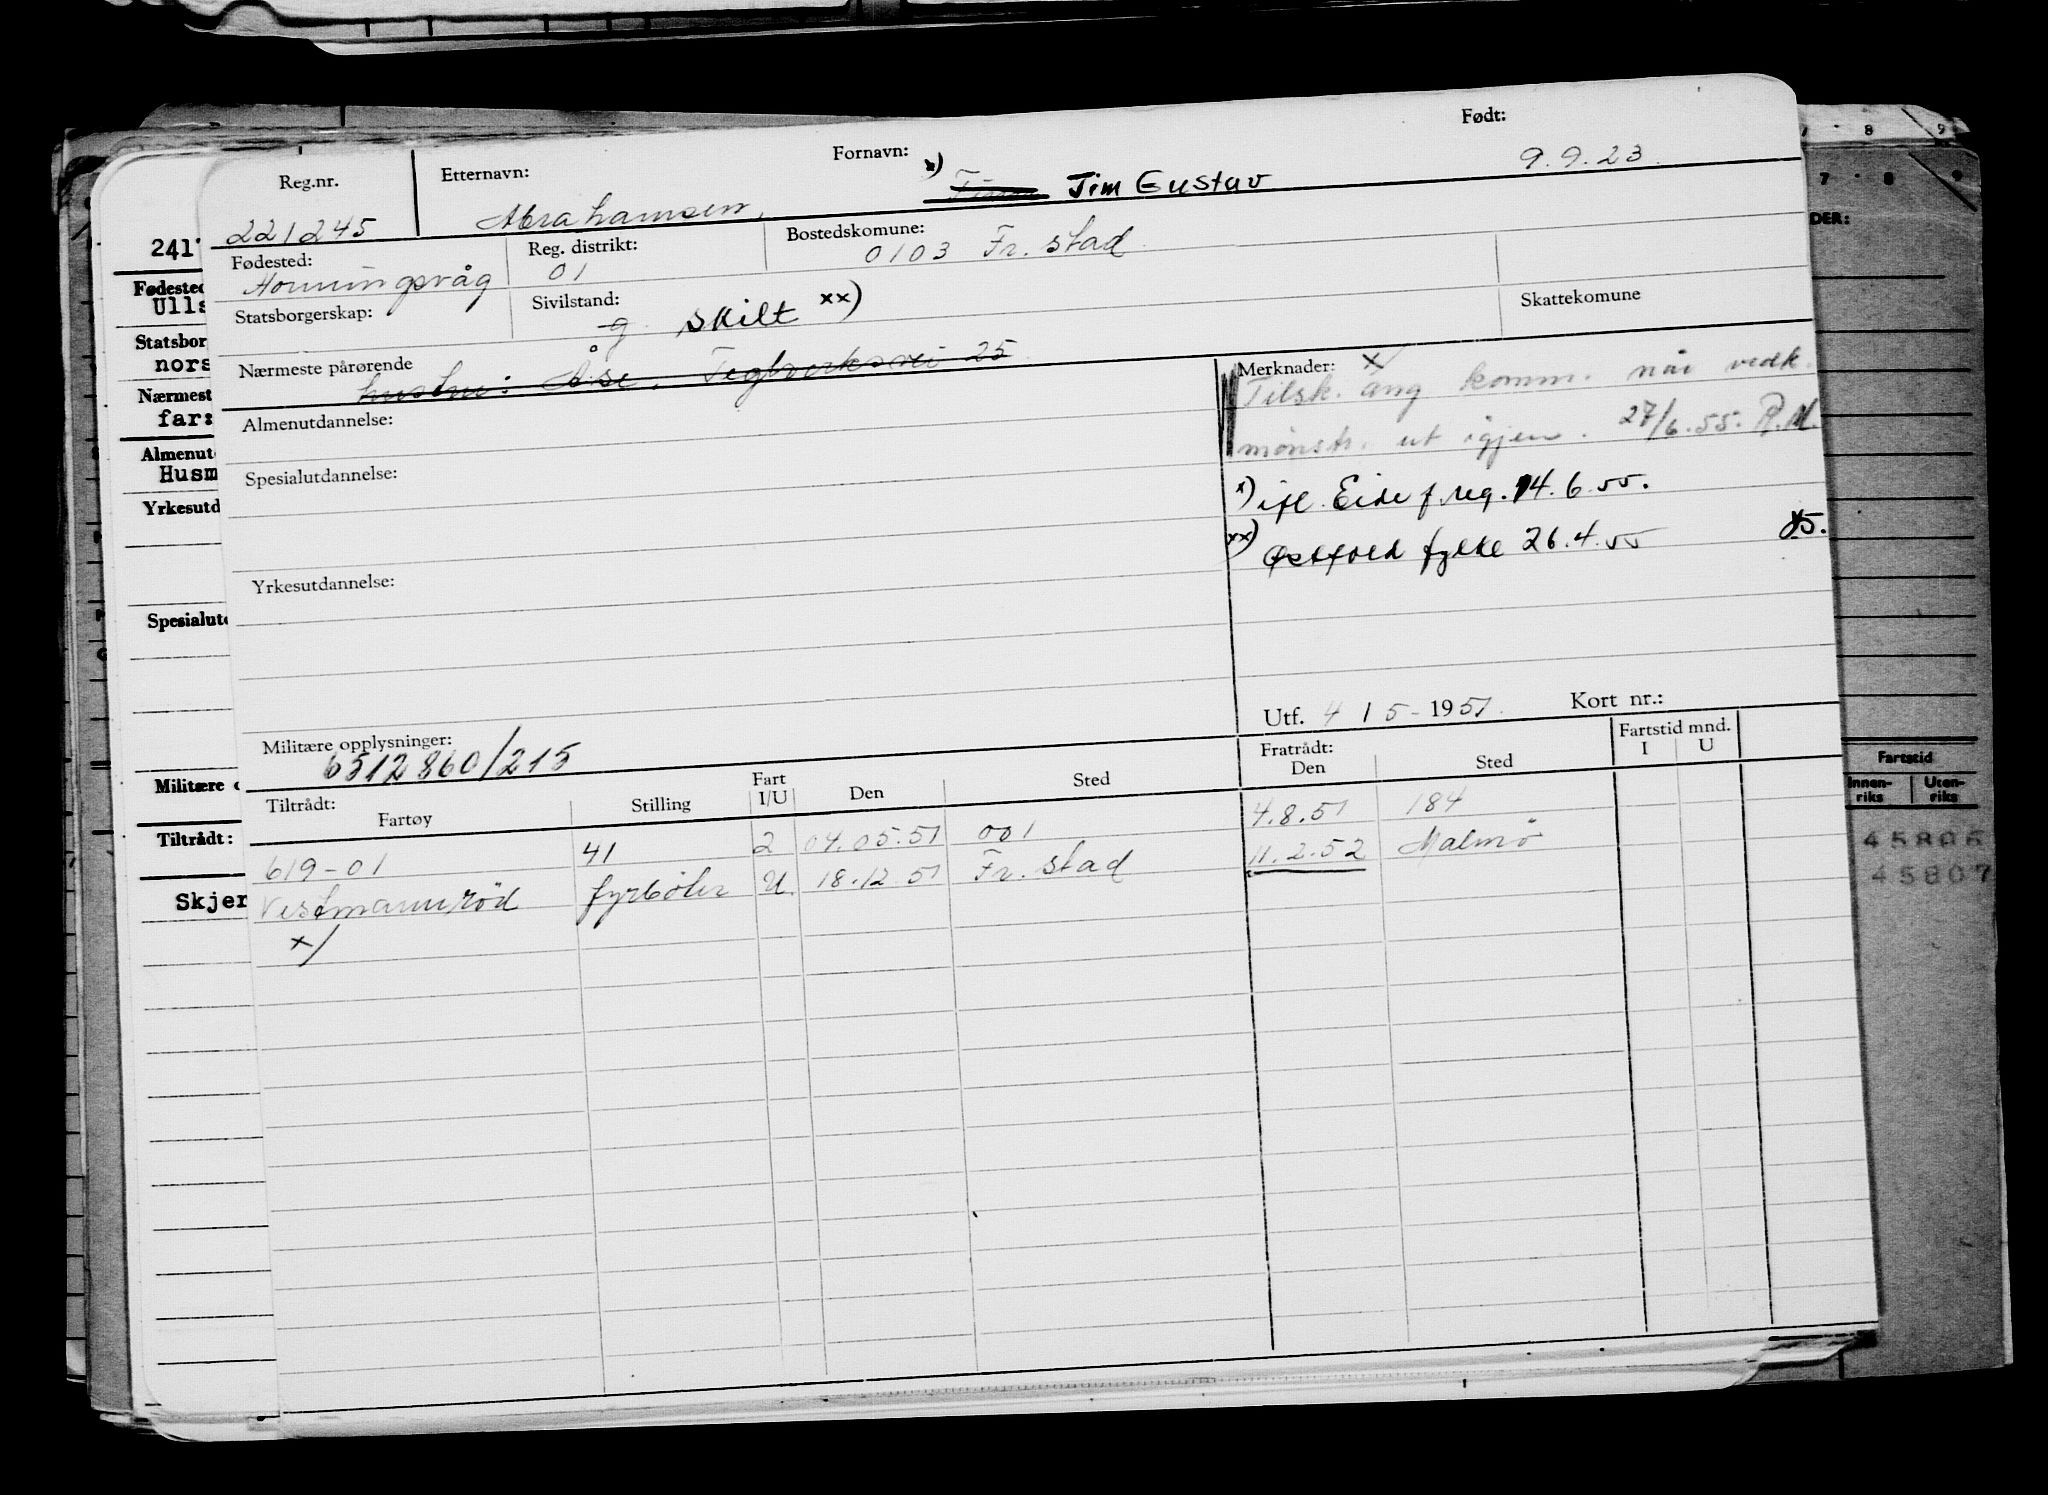 Reg.nr. Etternavn: Fornavn: Født:
221245 Abrahamsen, x) Jim Gustav 9.9.23.
Fødested: Reg. distrikt: Bostedskomune:
Honningsvåg 01 0103 Fr. stad
Statsborgerskap: Sivilstand: Skattekomune
g. skilt xx)
Nærmeste pårørende
hustru: Åse, Teglverksvei 25
Merknader: x/
Tilsk. ang komm. når vedk.
mønstr. ut igjen. 27/6.55. R.M.
x) ifl. Eide f. reg. 14.6.55.
xx) Østfold fylke 26.4.55
Almenutdannelse:
Spesialutdannelse:
Yrkesutdannelse:
Utf. 4 / 5 - 1951. Kort nr.:
Militære opplysninger:
6512860/215
Tiltrådt: Fratrådt: Fartstid mnd.
Fartøy Stilling Fart I/U Den Sted Den Sted I U
619-01 41 2 04.05.51 001 4.8.51 184
Vestmannrød fyrbøter U. 18.12.51 Fr. stad 11.2.52 Malmø
x/
241
Fødested
Ulls
Statsbor
nors
Nærmest
fars
Almenut
Husm
Yrkesutd
Spesialut
Militære
Tiltrådt:
Skjer
7 8 9
7 8 9
DER:
Fartstid
Innen-riks Uten-riks
45806
45807